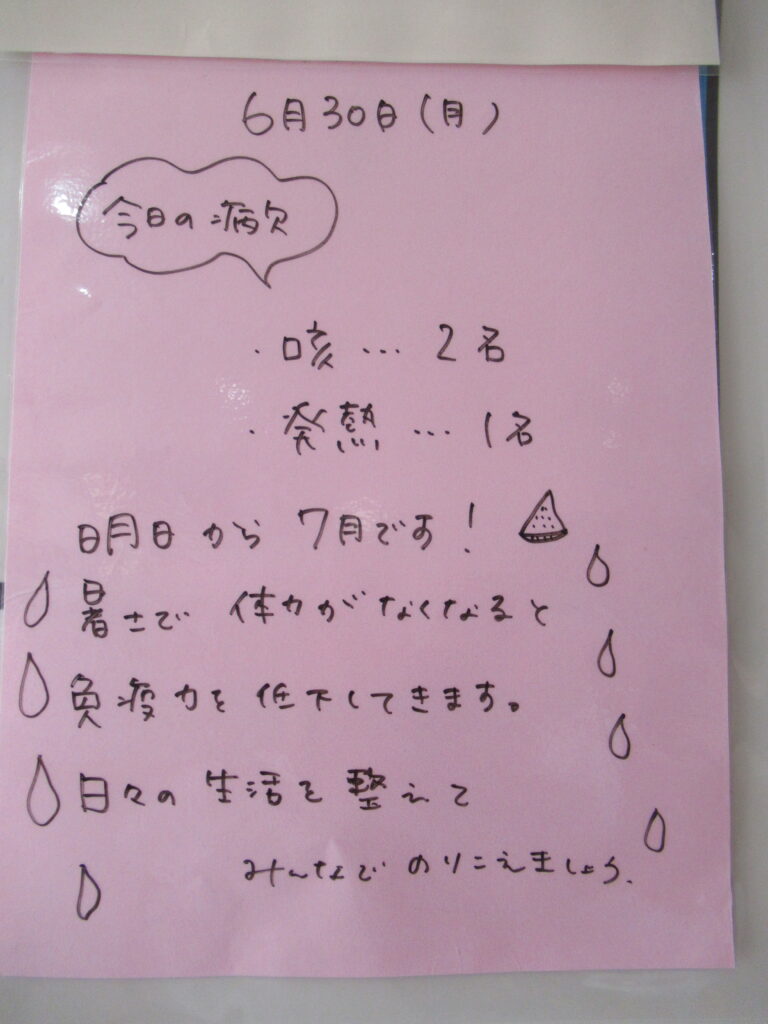 6月30日(月)
今日の病欠
・咳…2名
・発熱…1名
明日から7月です!
暑さで体力がなくなると
免疫力も低下してきます。
日々の生活を整えて
みんなでのりこえましょう。